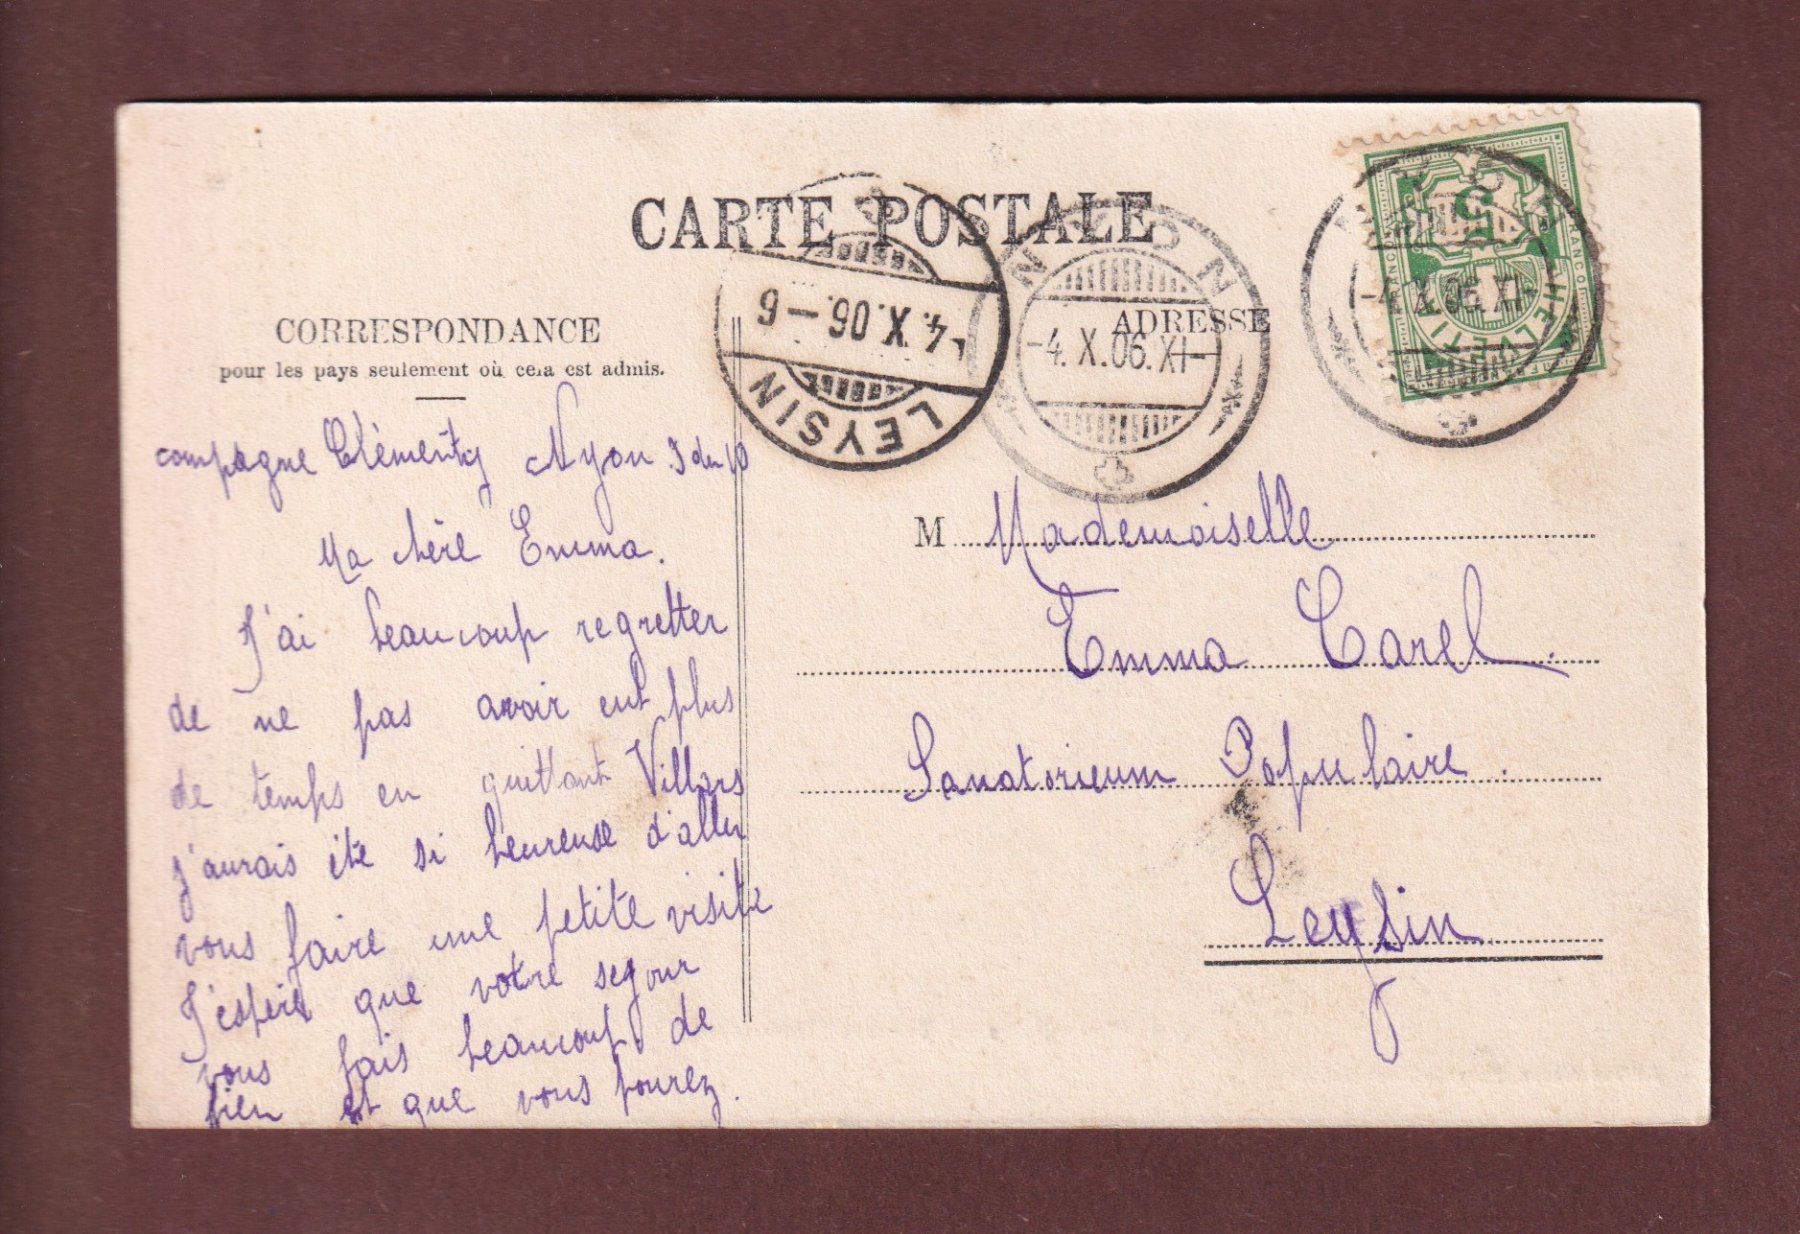 CARTE POSTALE
CORRESPONDANCE
pour les pays seulement où cela est admis.
campagne Clémenty Nyon 3 du 10
Ma chère Emma.
J'ai beaucoup regretter
de ne pas avoir eut plus
de temps en quittant Villars
j'aurais été si heureuse d'aller
vous faire une petite visite
J'espère que votre segour
vous fais beaucoup de
bien et que vous pourez.
LEYSIN
-4.X.06.-6
NYON
-4.X.06.XI-
NYON
-4.X.06.XI-
FRANCO
5
HELVETIA
ADRESSE
M Mademoiselle
Emma Carel.
Sanatorieum Populaire.
Leysin